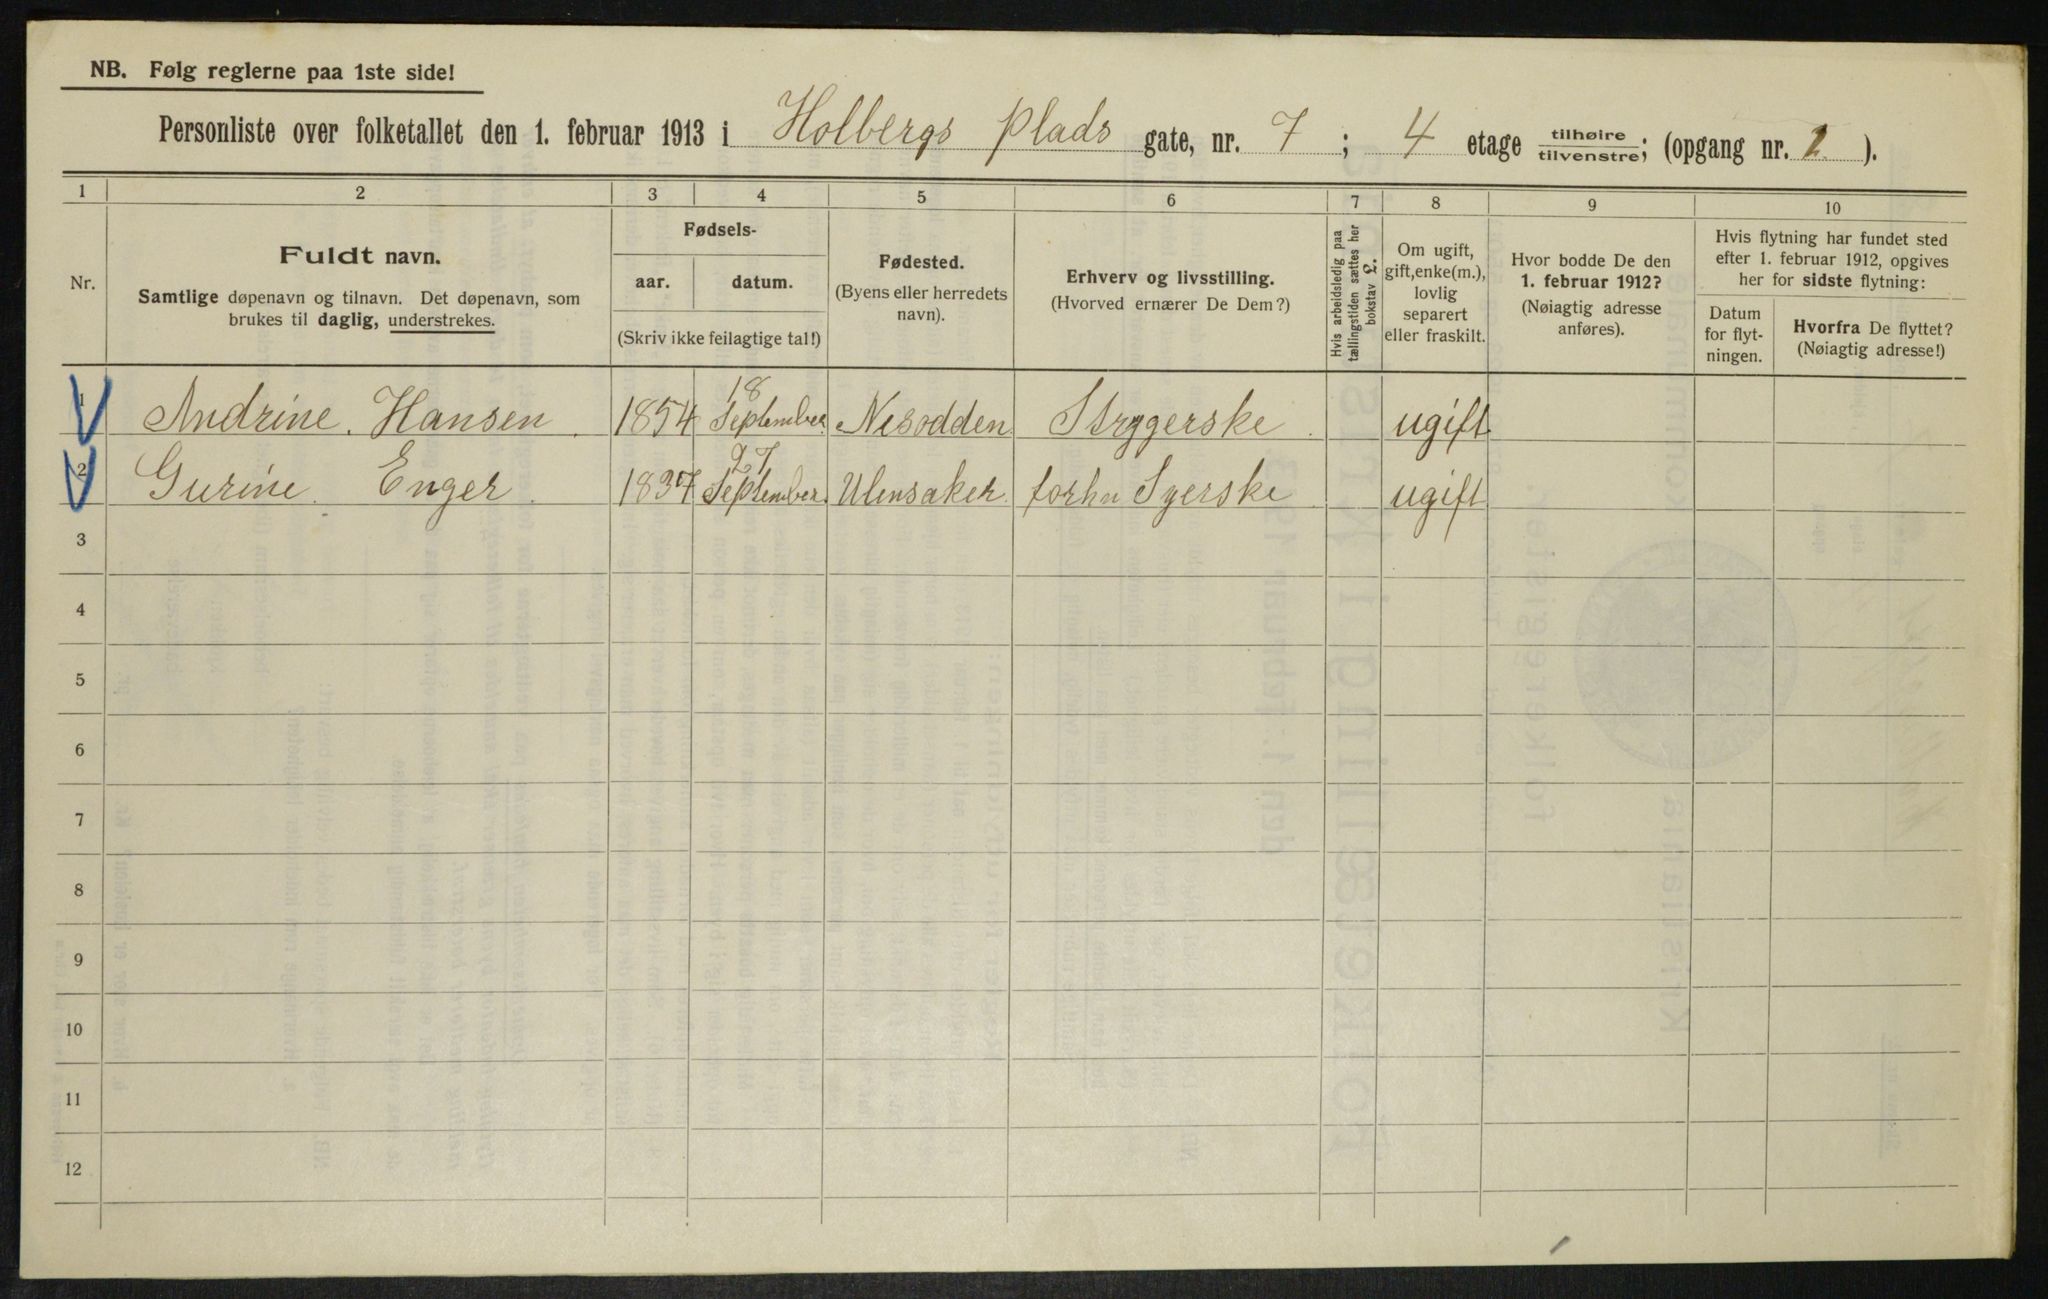 NB. Følg reglerne paa 1ste side!
Personliste over folketallet den 1. februar 1913 i Holbergs Plads gate, nr. 7 ; 4 etage tilhøire/tilvenstre; (opgang nr. 2 ).
1 2 3 4 5 6 7 8 9 10
Nr.
Fuldt navn.
Samtlige døpenavn og tilnavn. Det døpenavn, som
brukes til daglig, understrekes.
Fødsels-
aar. datum.
(Skriv ikke feilagtige tal!)
Fødested.
(Byens eller herredets
navn).
Erhverv og livsstilling.
(Hvorved ernærer De Dem?)
Hvis arbeidsledig paa
tællingstiden sættes her
bokstav L.
Om ugift,
gift, enke(m.),
lovlig
separert
eller fraskilt.
Hvor bodde De den
1. februar 1912?
(Nøiagtig adresse
anføres).
Hvis flytning har fundet sted
efter 1. februar 1912, opgives
her for sidste flytning:
Datum
for flyt-
ningen.
Hvorfra De flyttet?
(Nøiagtig adresse!)
1 Andrine Hansen 1854 18 September Nesodden Strygerske ugift
2 Gurine Enger 1837 27 September Ulensaker forhn Syerske ugift
3
4
5
6
7
8
9
10
11
12